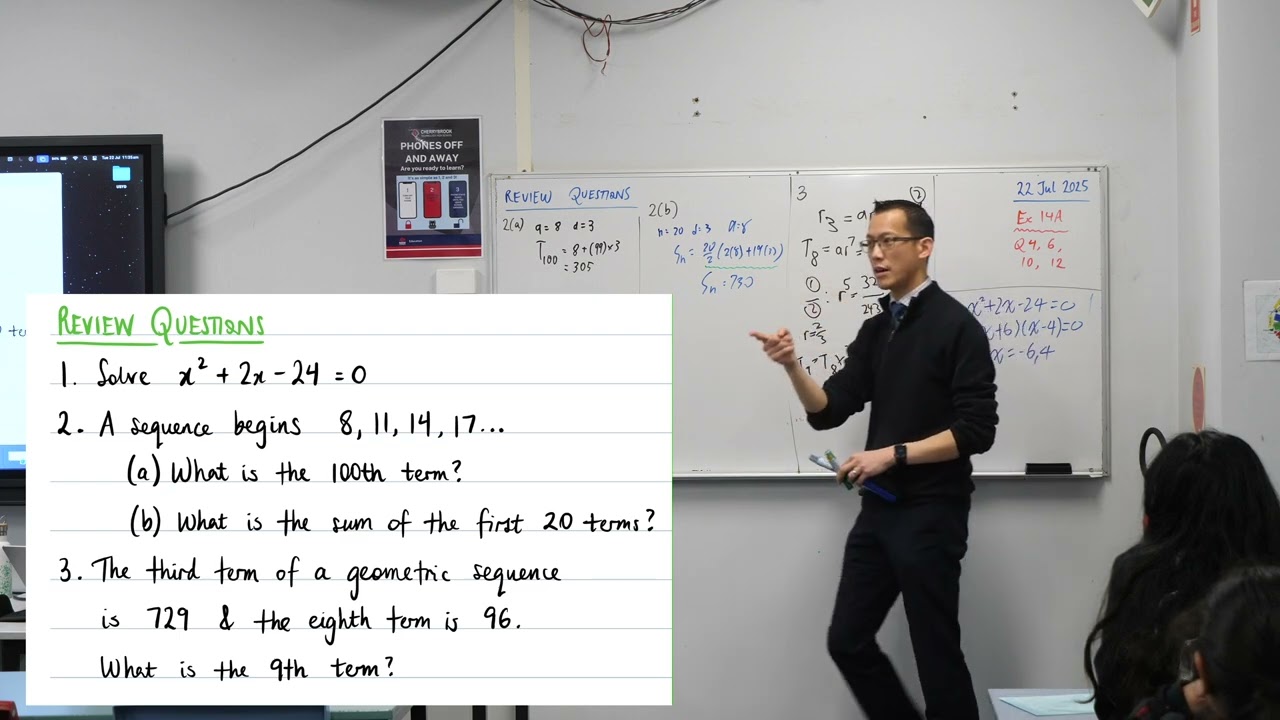 Tue 22 Jul 11:35am
USYD
CHERRYBROOK
PHONES OFF
AND AWAY
Are you ready to learn?
It's as simple as 1, 2 and 3!
1 2 3
REVIEW QUESTIONS
2(a) a = 8 d = 3
T100 = 8 + (99) × 3
= 305
2(b)
n = 20 d = 3
Sn = 20/2 (2(8) +
Sn = 730
3
②
T8 = ar⁷
①
②
: r⁵ =
243
r = 2/3
22 Jul 2025
Ex 14A
Q 4, 6,
10, 12
x² + 2x - 24 = 0
x + 6)(x - 4) = 0
x = -6, 4
REVIEW QUESTIONS
1. Solve x² + 2x - 24 = 0
2. A sequence begins 8, 11, 14, 17...
(a) What is the 100th term?
(b) What is the sum of the first 20 terms?
3. The third term of a geometric sequence
is 729 & the eighth term is 96.
What is the 9th term?